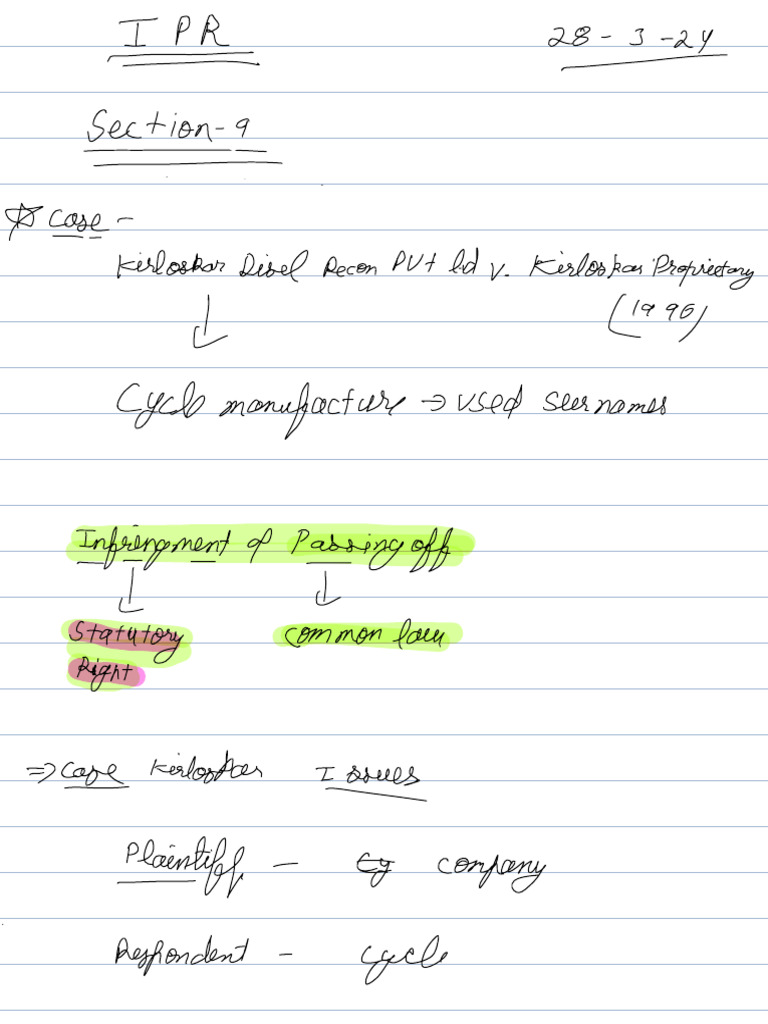 IPR 28-3-24
Section-9
☆ Case -
Kirloskar Disel Recon PVt ltd v. Kirloskar Proprietary
(1996)
↓
Cycle manufacture → used seurnames
Infringment of Passing off
↓ ↓
Statutory common law
Right
⇒ Case Kirloskar Issues
Plaintiff - Cy company
Respondent - cycle